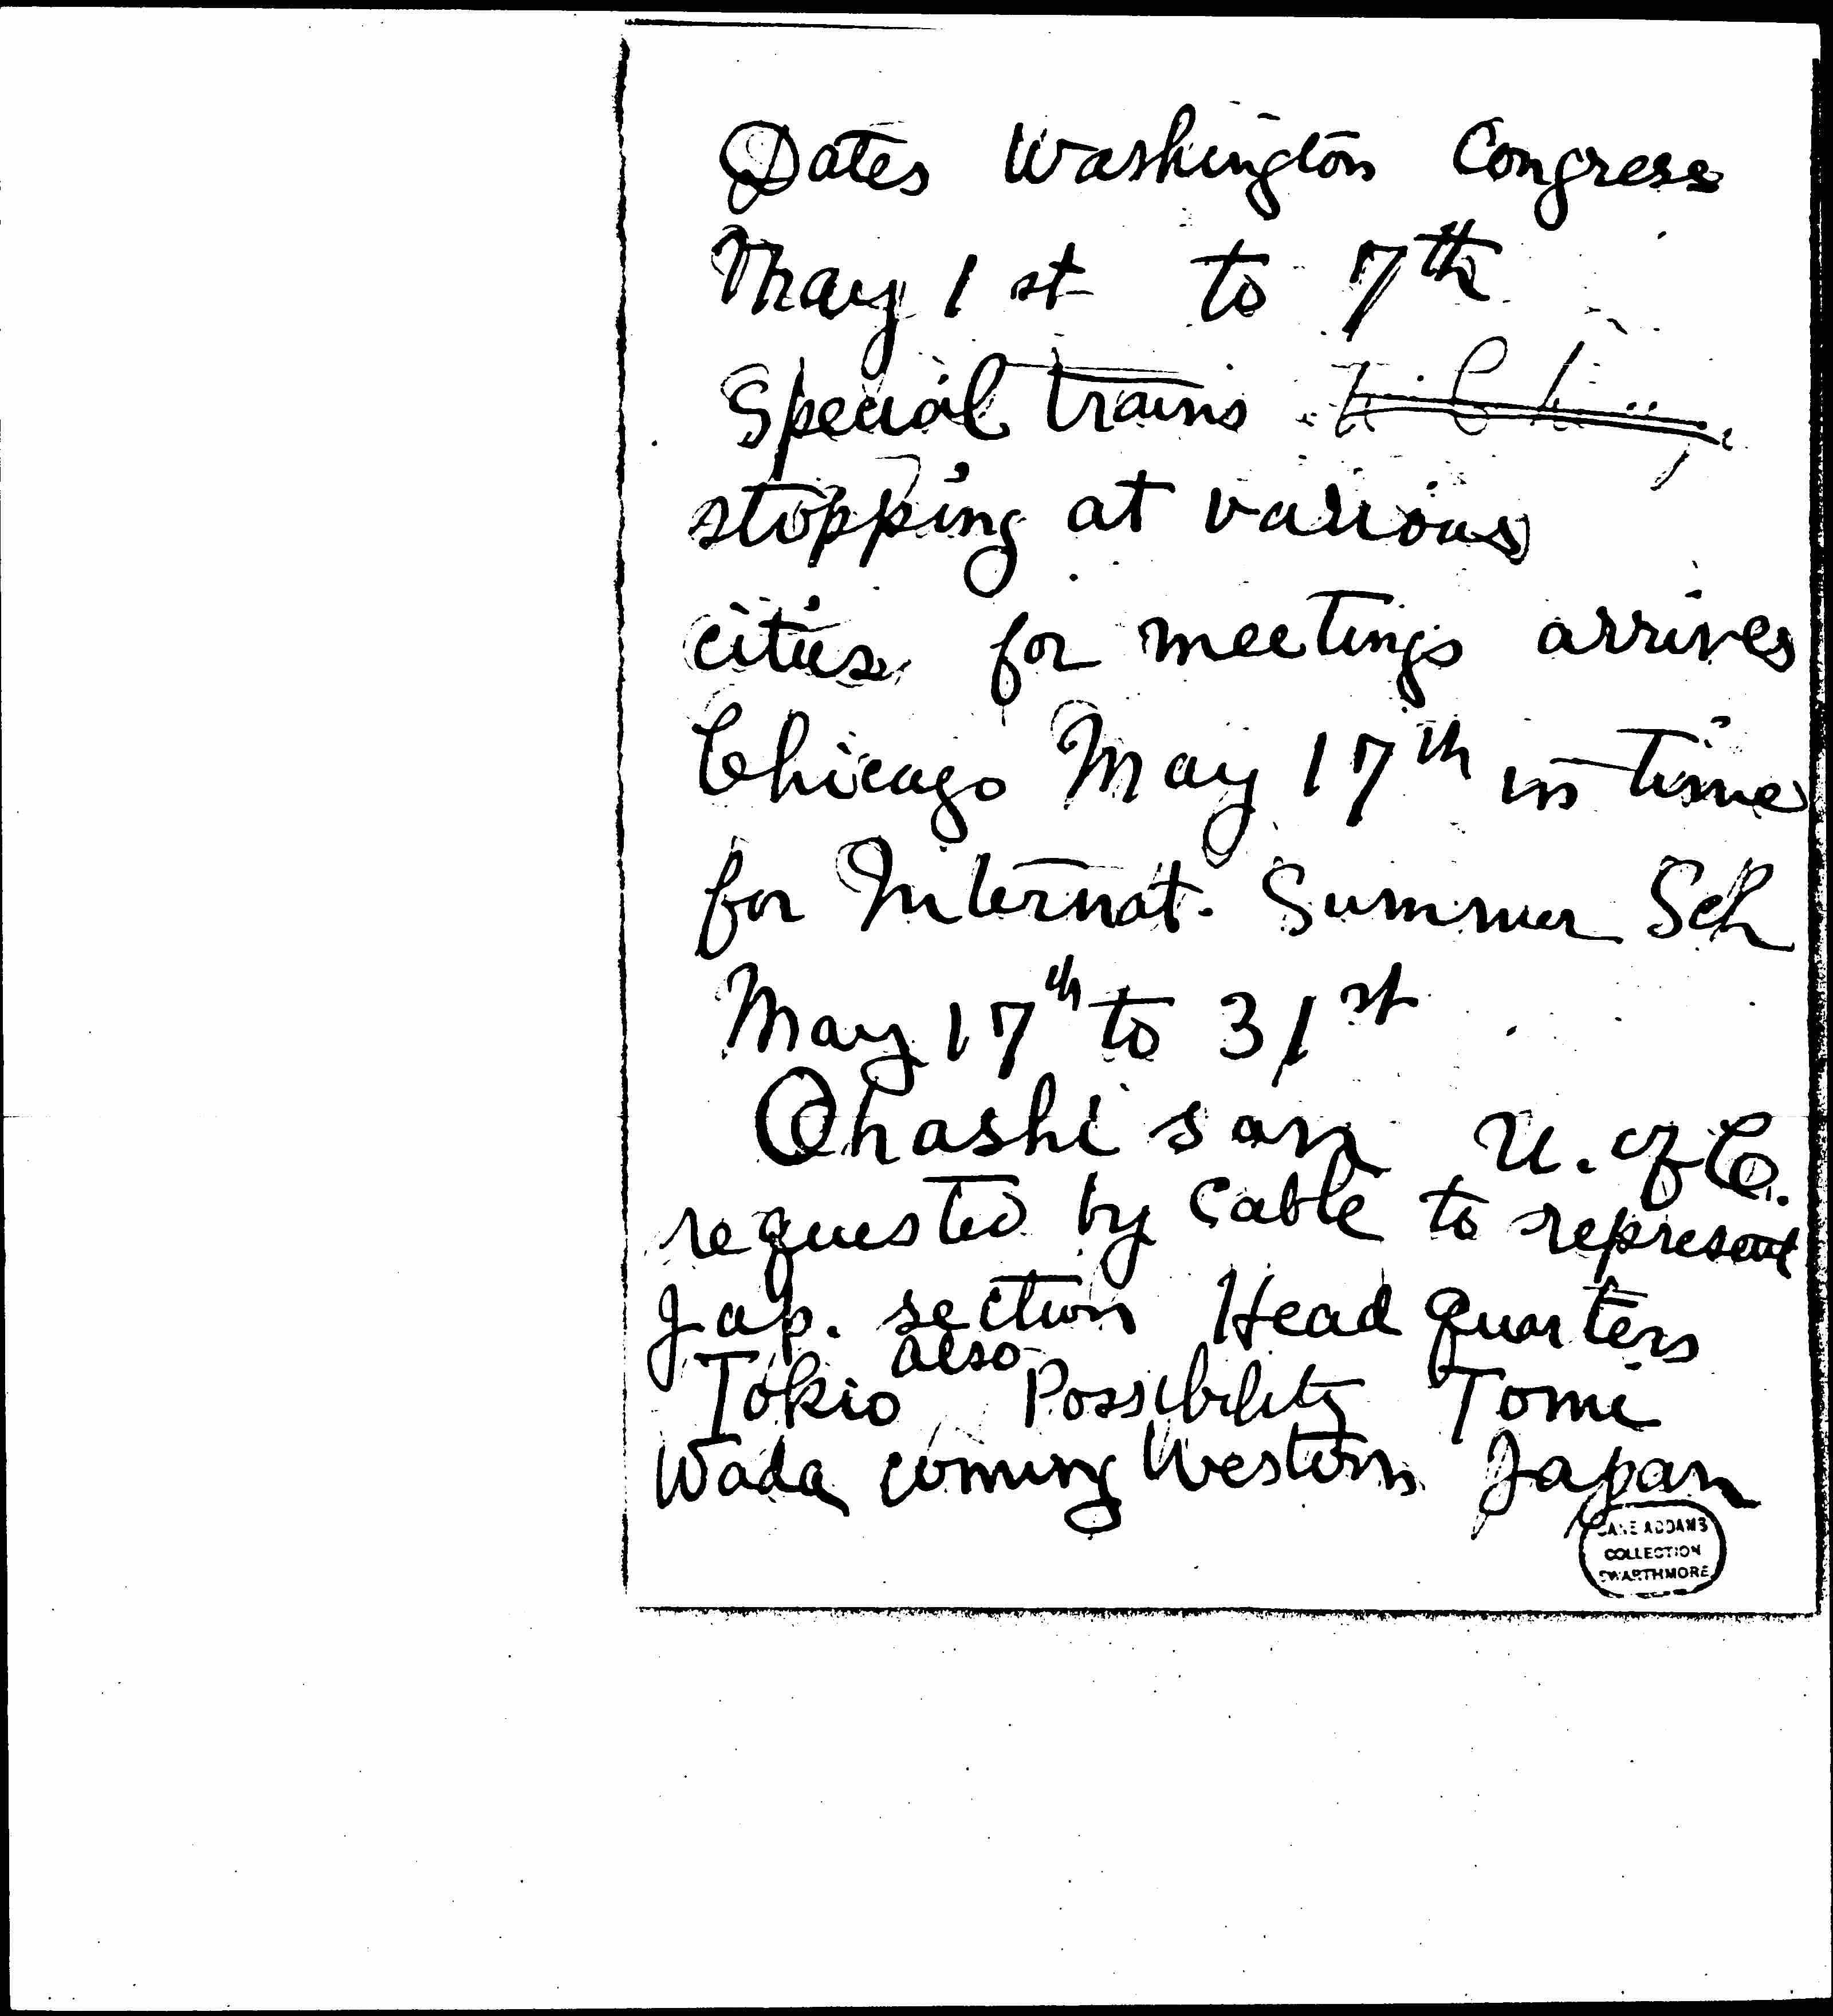 Dates Washington Congress
May 1st to 7th
Special trains
stopping at various
cities for meetings arrives
Chicago May 17th in time
for Internat. Summer Sch
May 17th to 31st
Ohashi san U. of C.
requested by cable to represent
Jap. section Head quarters
also
Tokio Possibility Tomi
Wada coming Western Japan
JANE ADDAMS
COLLECTION
SWARTHMORE